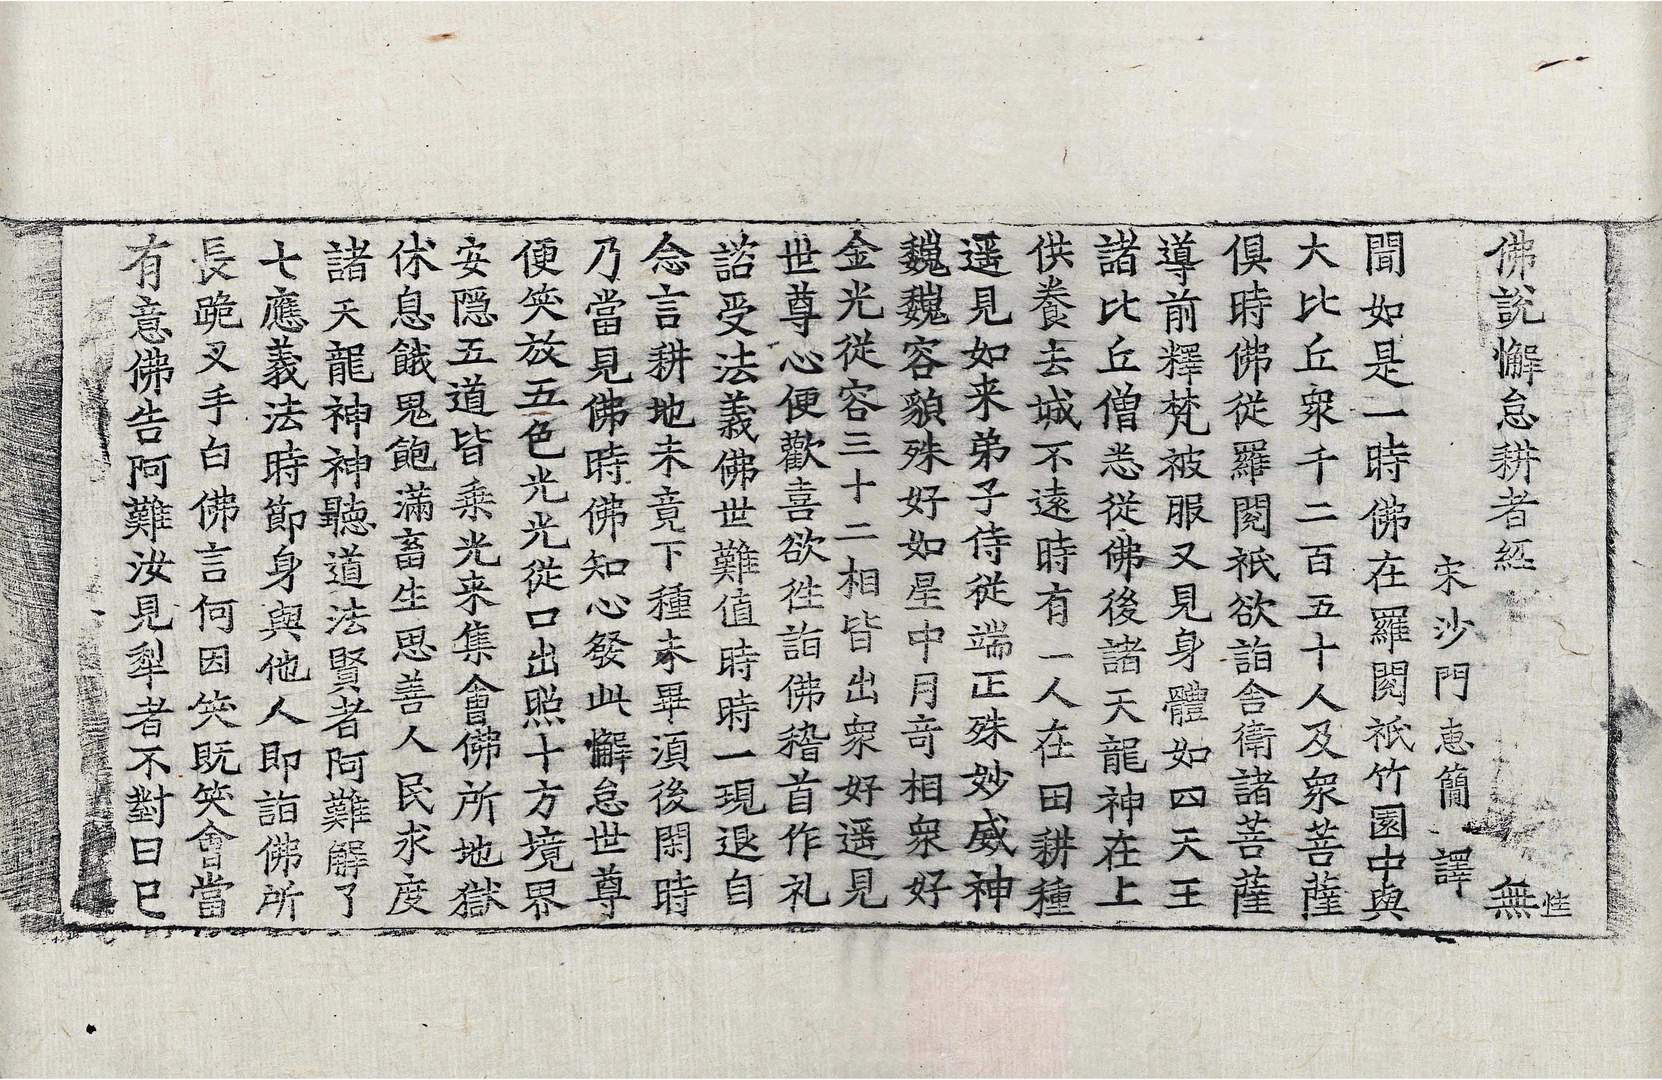 佛說懈怠耕者經 無
宋沙門惠簡 譯
聞如是一時佛在羅閱祇竹園中與
大比丘衆千二百五十人及衆菩薩
俱時佛從羅閱祇欲詣舍衛諸菩薩
導前釋梵被服又見身體如四天王
諸比丘僧悉從佛後諸天龍神在上
供養去城不遠時有一人在田耕種
遥見如来弟子侍從端正殊妙威神
巍巍容貌殊好如星中月竒相衆好
金光從容三十二相皆出衆好遥見
世尊心便歡喜欲徃詣佛稽首作礼
諮受法義佛世難值時時一現退自
念言耕地未竟下種未畢湏後閑時
乃當見佛時佛知心發此懈怠世尊
便笑放五色光光從口出照十方境界
安隱五道皆乗光来集會佛所地獄
休息餓鬼飽滿畜生思善人民求度
諸天龍神神聽道法賢者阿難解了
七應義法時節身與他人即詣佛所
長跪叉手白佛言何因笑既笑會當
有意佛告阿難汝見犁者不對曰已